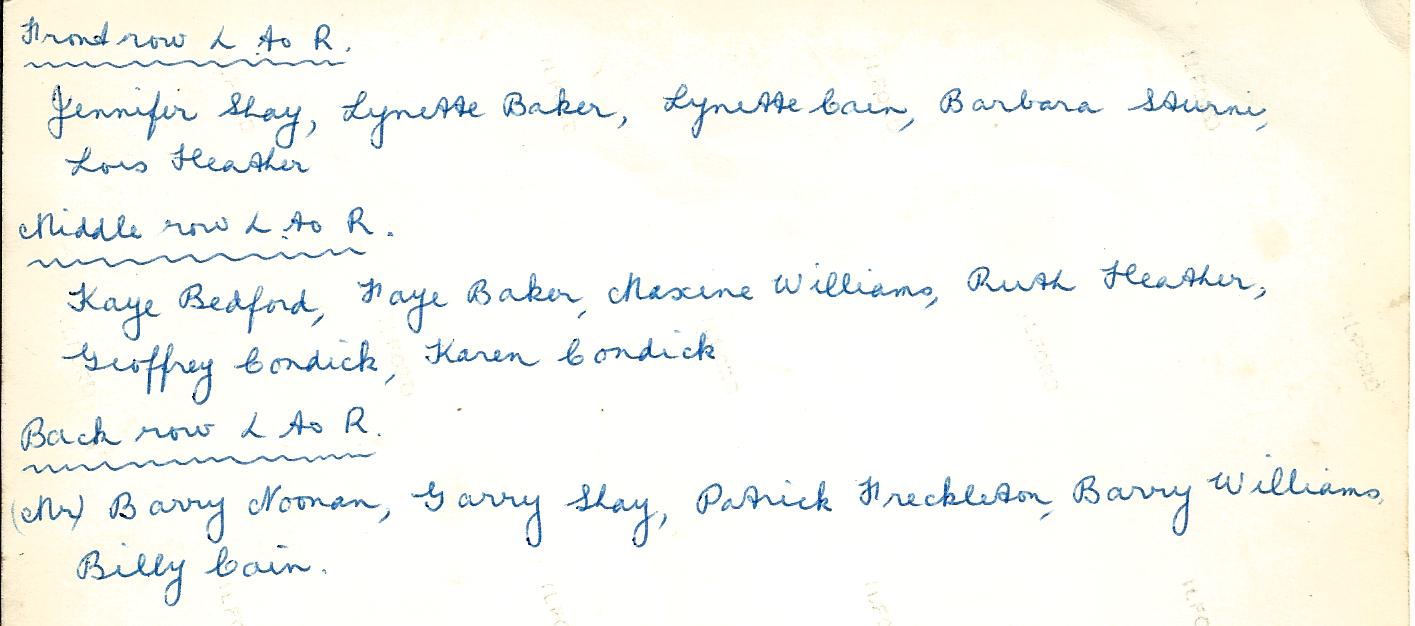 Front row L to R.
Jennifer Shay, Lynette Baker, Lynette Cain, Barbara Sturni,
Lois Heather
Middle row L to R.
Kaye Bedford, Faye Baker, Maxine Williams, Ruth Heather,
Geoffrey Condick, Karen Condick
Back row L to R.
(Mr) Barry Noonan, Garry Shay, Patrick Freckleton, Barry Williams,
Billy Cain.